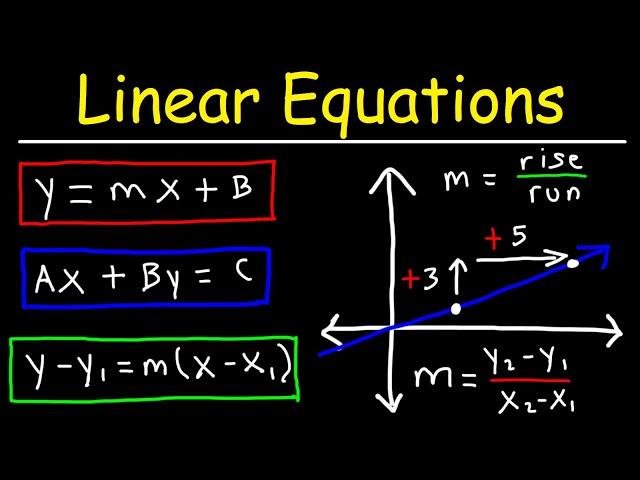 Linear Equations
y = mx + B
Ax + By = C
y - y₁ = m(x - x₁)
m = rise/run
+5
+3
m = y₂ - y₁ / x₂ - x₁